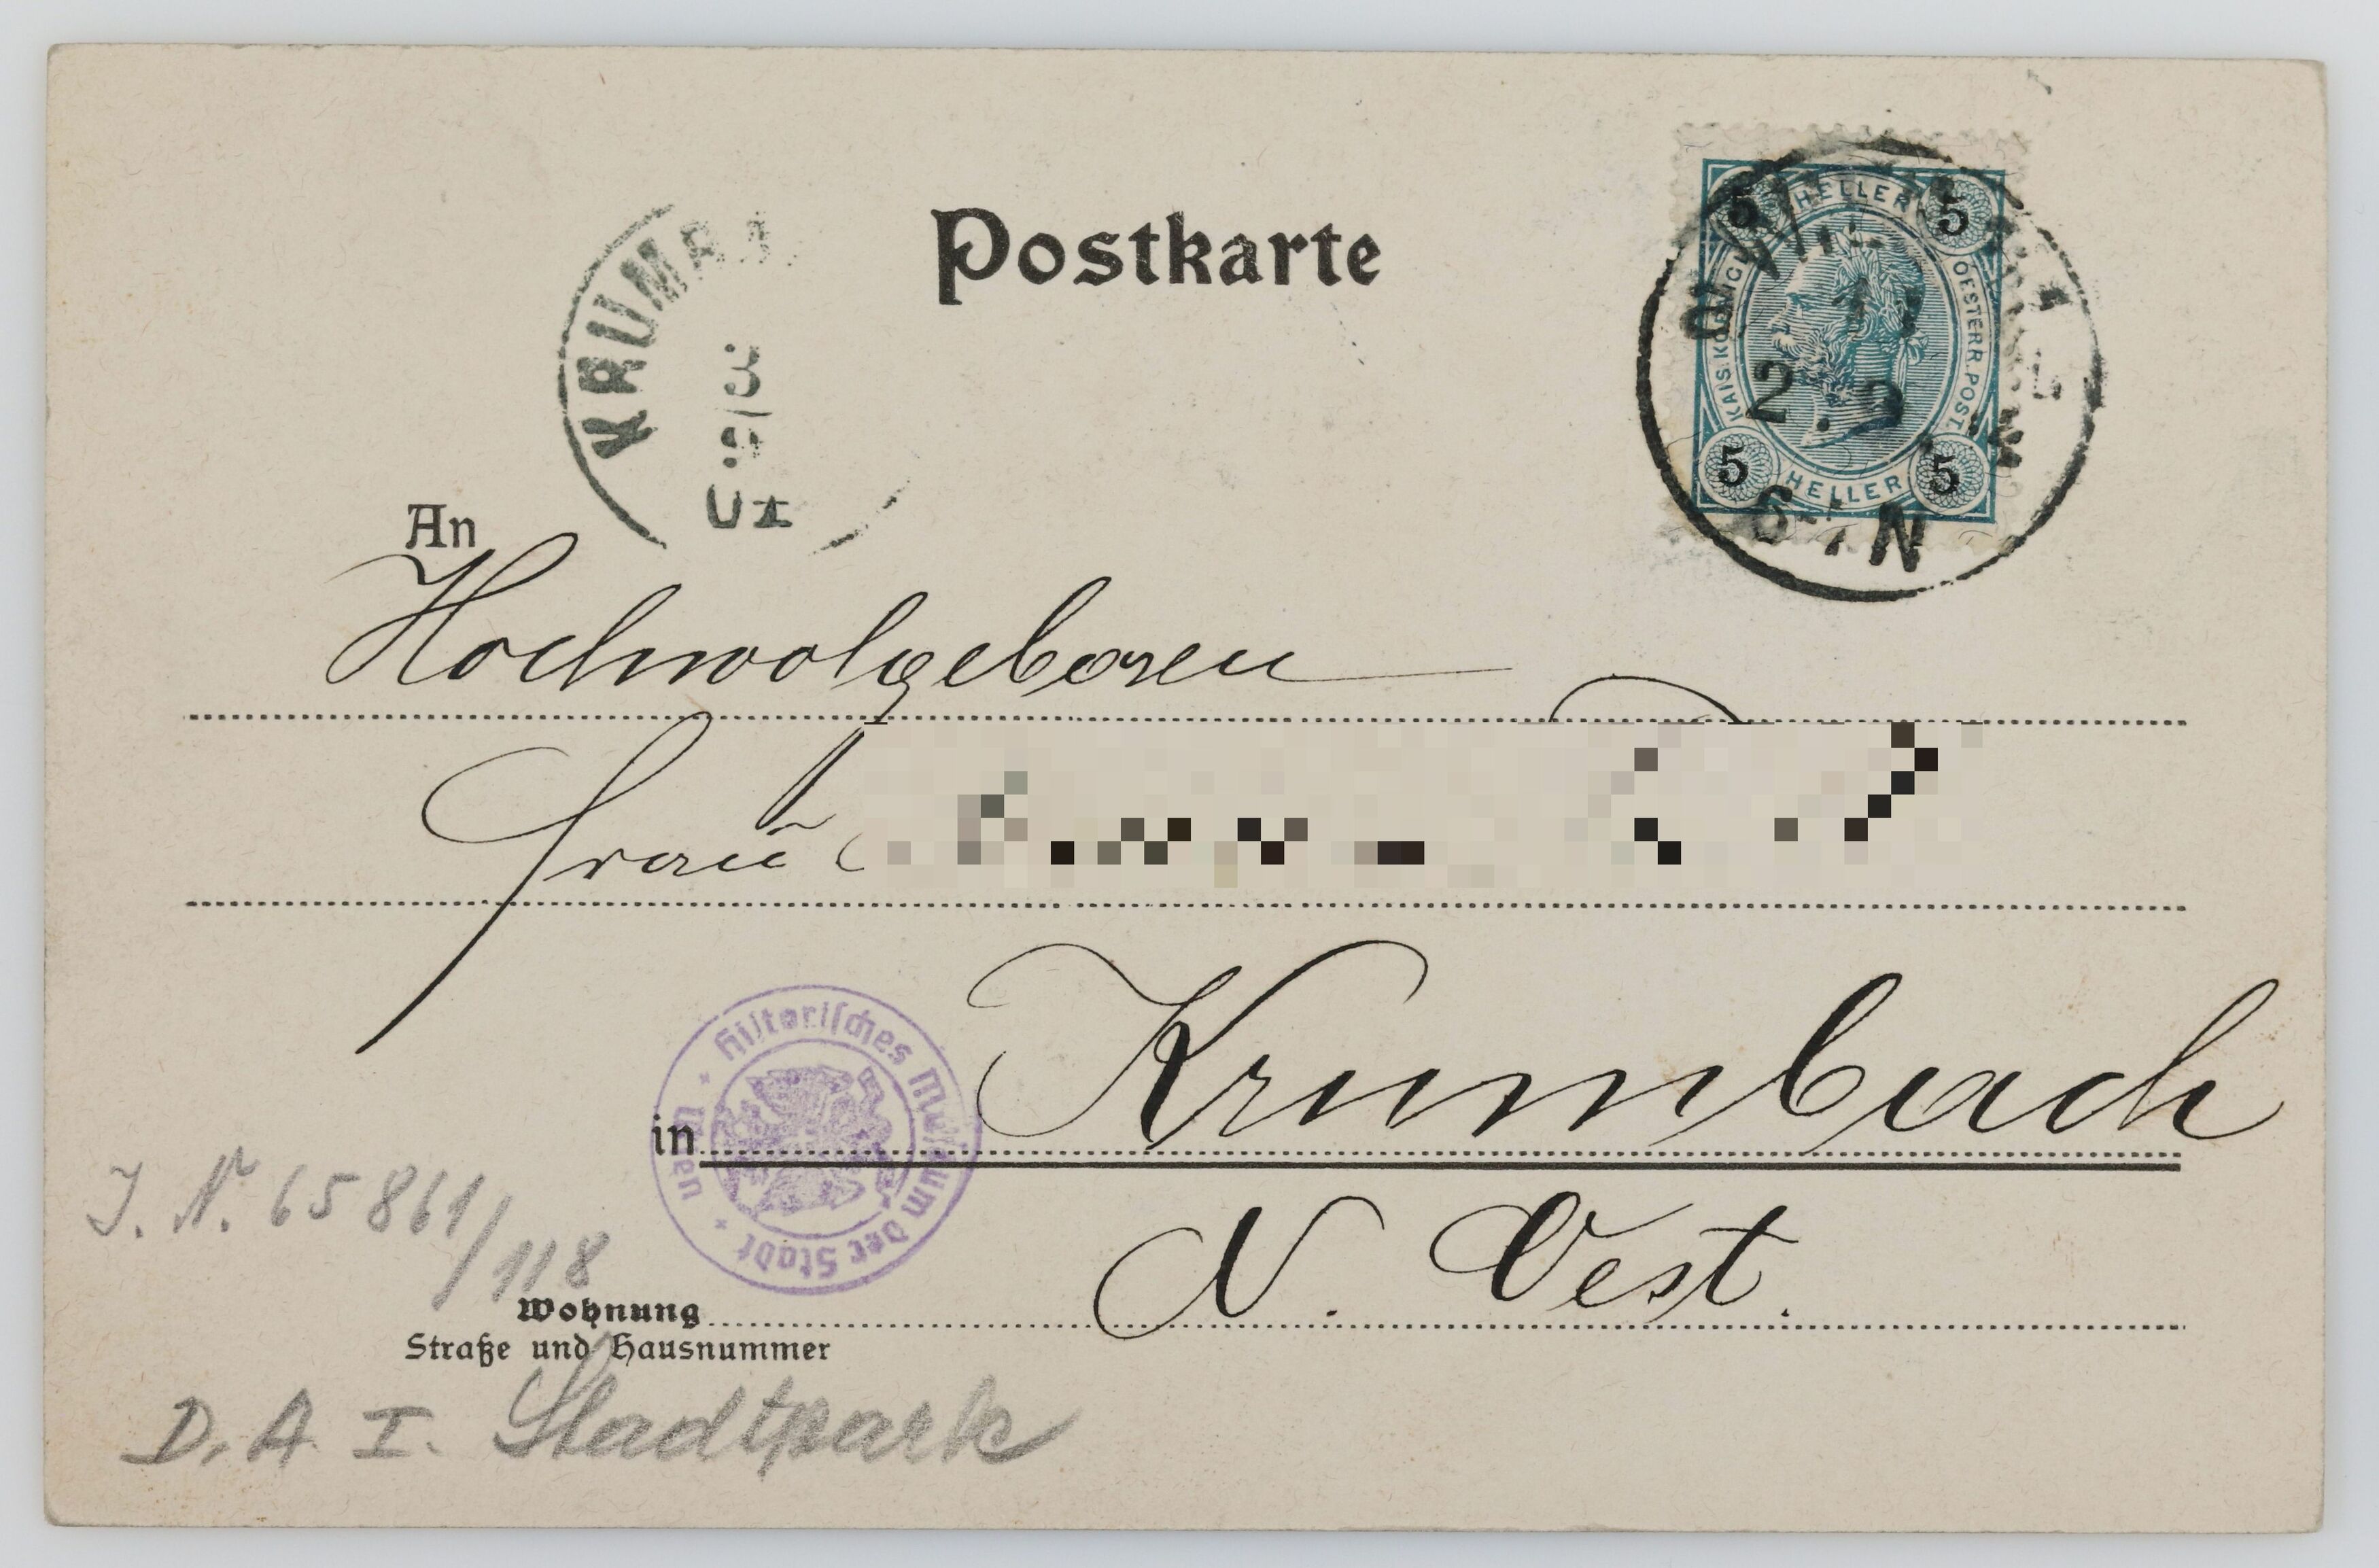 Postkarte
KRUMBA
5 HELLER 5
KAIS. KÖNIGL. OESTERR. POST
5 HELLER 5
2 9
6-7 N
An
Hochwolgeboren
Frau
in Krumbach
Historisches Museum der Stadt Wien
J. Nr. 65861/118
N. Oest.
Wohnung
Straße und Hausnummer
D. A I. Stadtpark